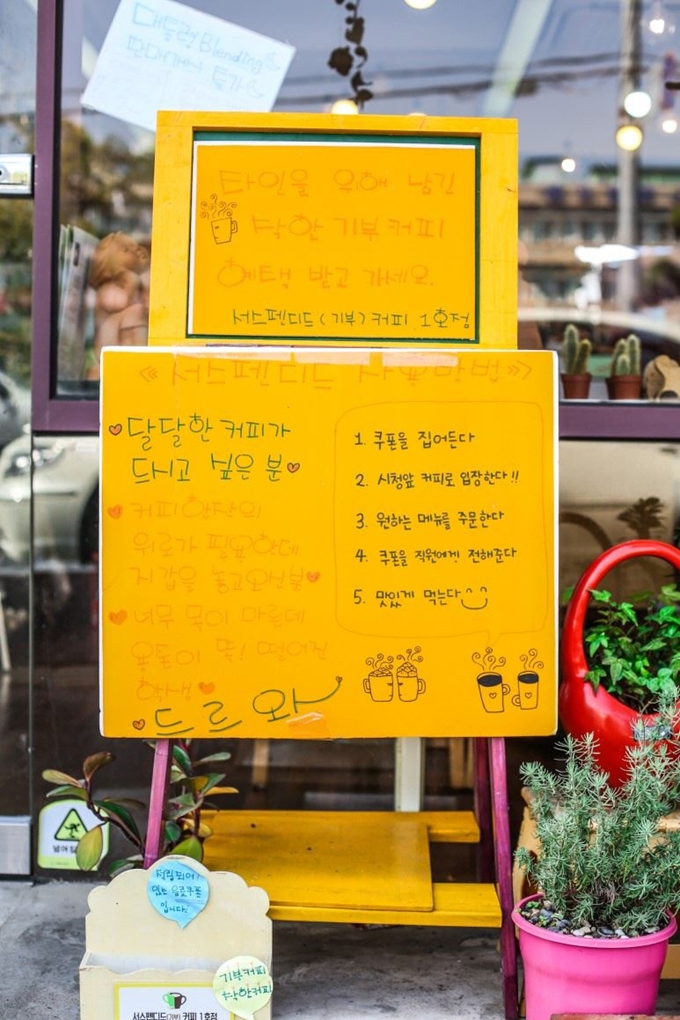 대통령 Blending
판매개시 특가
타인을 위해 남긴
착한 기부커피
혜택 받고 가세요.
서스펜디드(기부)커피 1호점
《서스펜디드 사용방법》
달달한 커피가
드시고 싶은 분
커피 한잔의
위로가 필요한데
지갑을 놓고오신분
너무 목이 마른데
용돈이 똑! 떨어진
학생
드르와
1. 쿠폰을 집어든다
2. 시청앞 커피로 입장한다!!
3. 원하는 메뉴를 주문한다
4. 쿠폰을 직원에게 전해준다
5. 맛있게 먹는다
적립되어
있는 음료쿠폰
입니다!
기부커피
착한커피
서스펜디드(기부) 커피 1호점